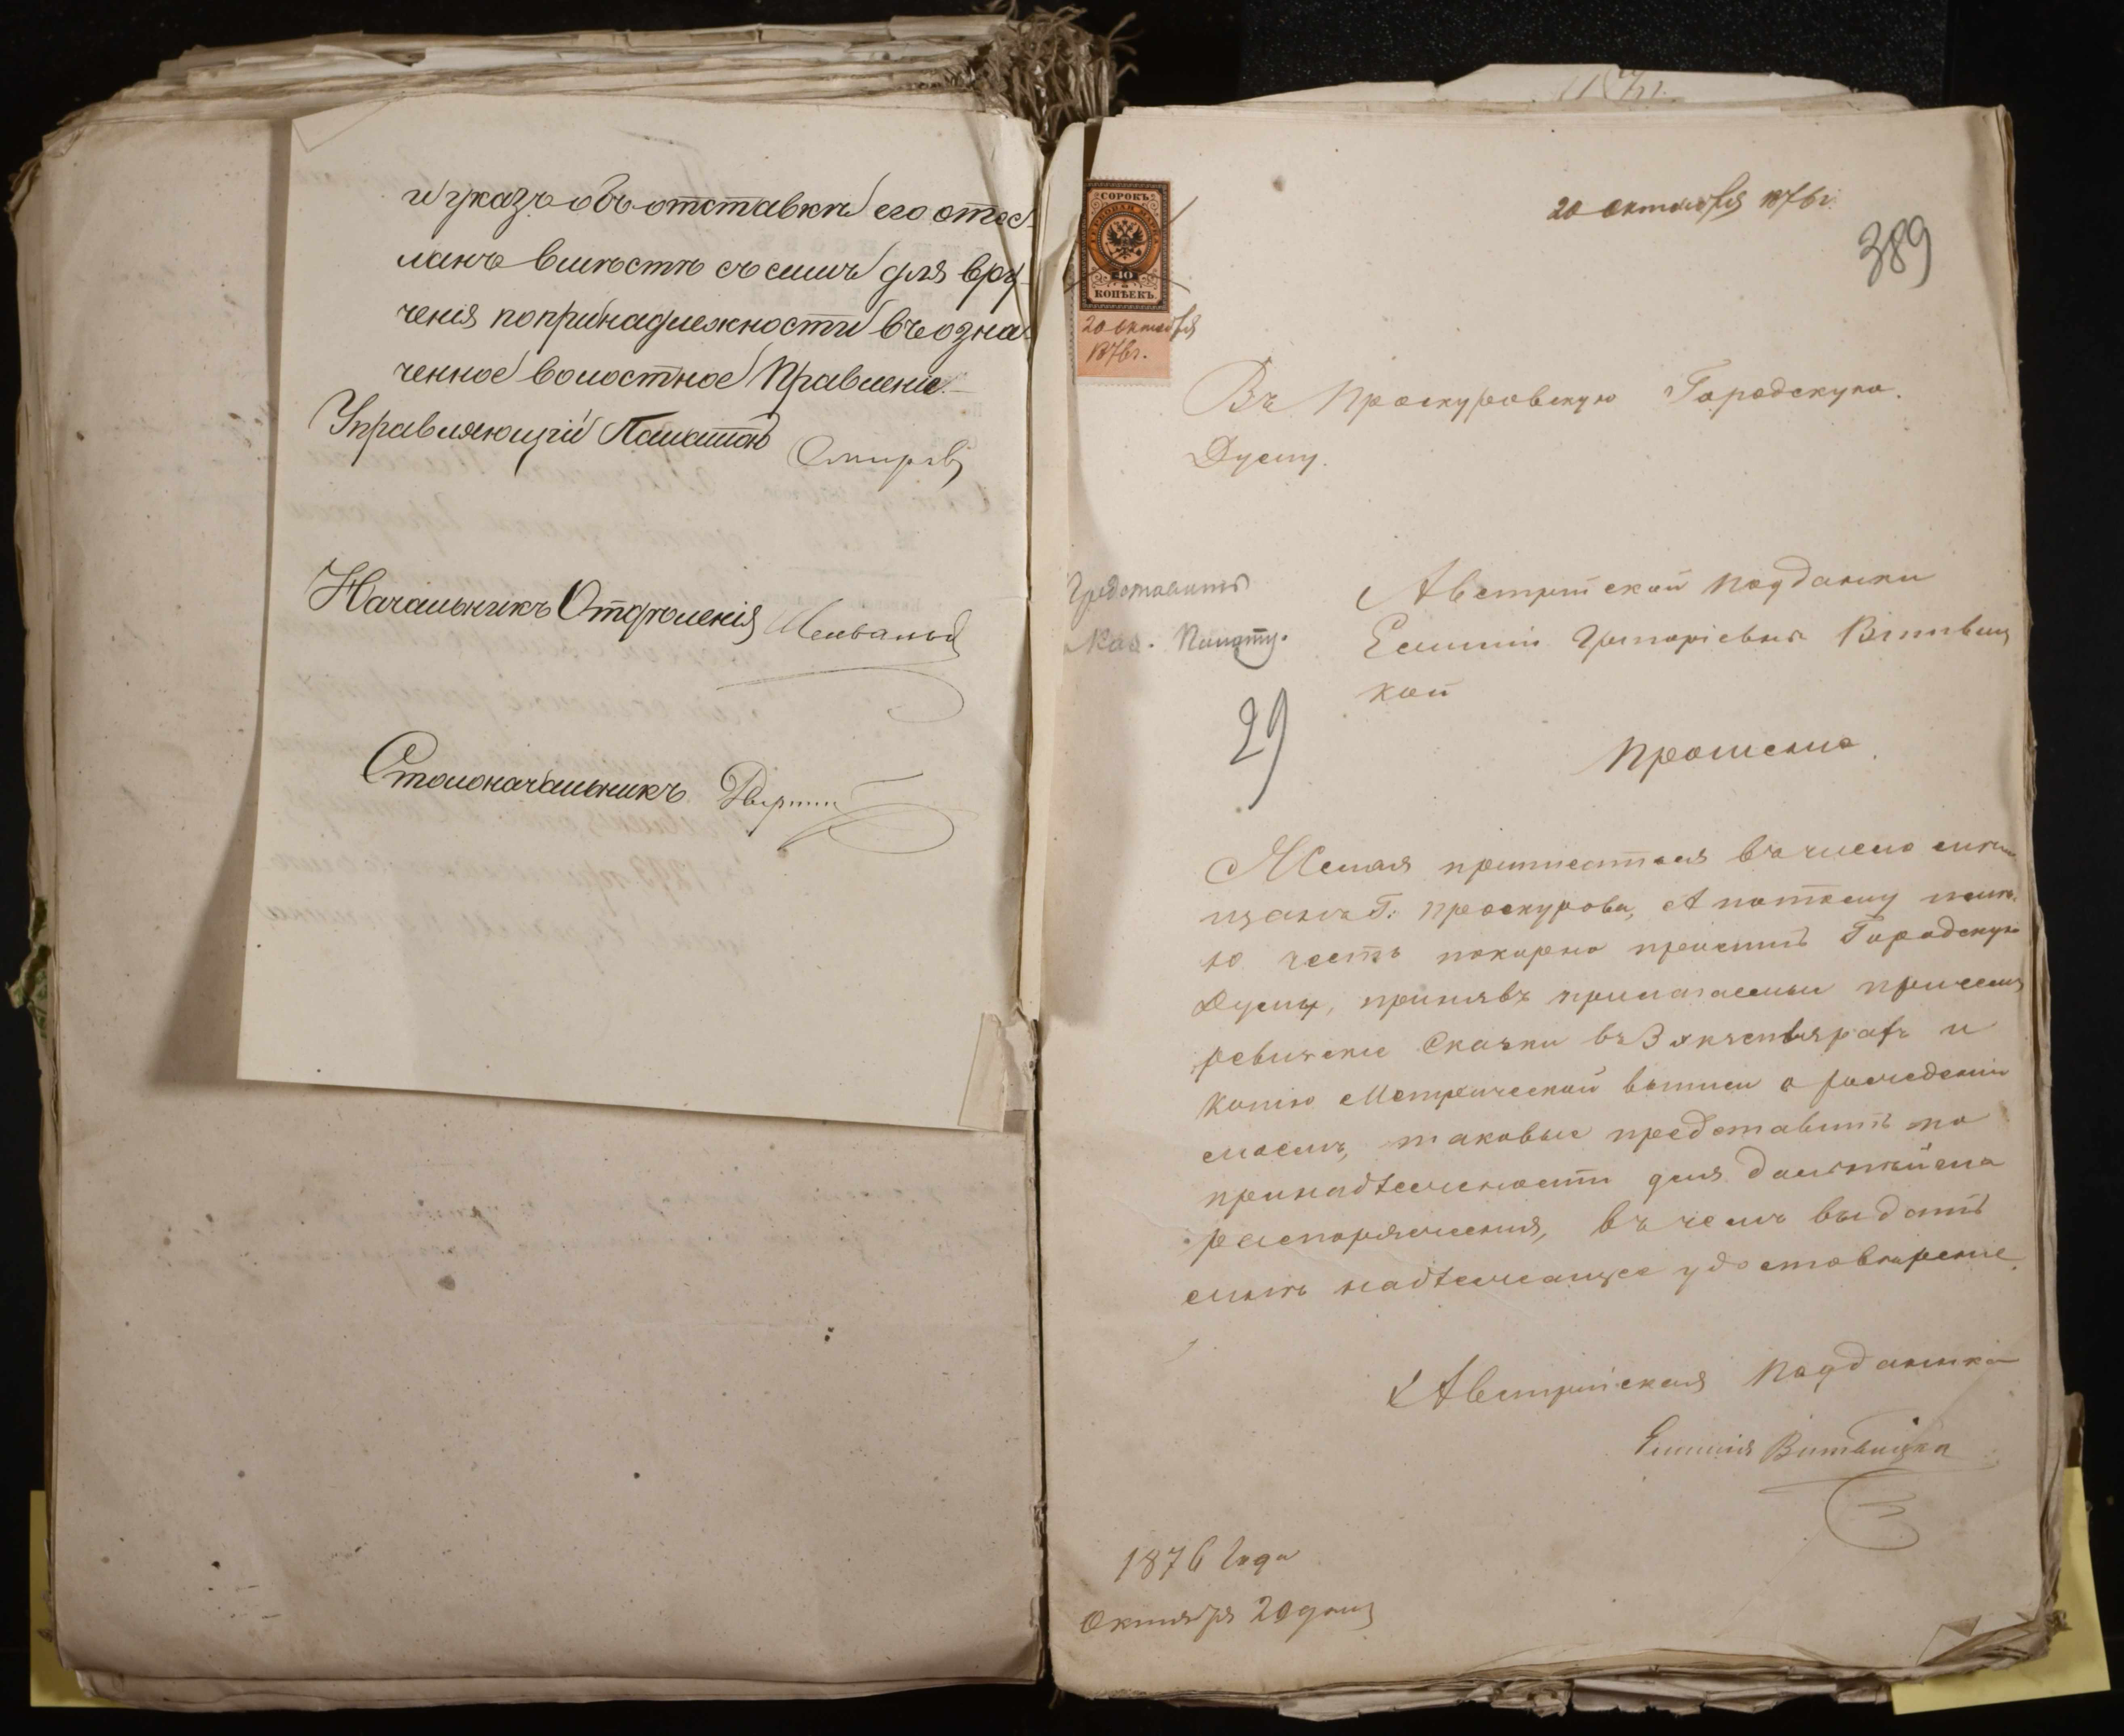 и указъ объ отставкѣ его отос-
ланъ вмѣстѣ съ симъ для вру-
ченія по принадлежности въ озна-
ченное волостное Правленіе.
Управляющій Палатою
Начальникъ Отдѣленія
Столоначальникъ
20 октября 1876 г.
389
СОРОКЪ
ГЕРБОВАЯ МАРКА
40
КОПѢЕКЪ.
20 октября
1876 г.
Въ Проскуровскую Городскую
Думу.
Представить
Каз. Палату.
29
Австрійской подданки
Емиліи Григоріевны Витвиц
кой
Прошеніе.
Желая приписаться въ число мѣ
щанъ г. Проскурова, А потому имѣ
ю честь покорно просить Городскую
Думу, принявъ прилагаемыи при семъ
ревизскіе Сказки въ 3 экземплярахъ и
копію Метрической выписи о рожденіи
моемъ, таковые представить по
принадлежности для дальнѣйшаго
распоряженія, въ чемъ выдать
мнѣ надлежащее удостовѣреніе.
Австрійская Подданка
Емилія Витвицка
1876 Года
Октября 20 дня